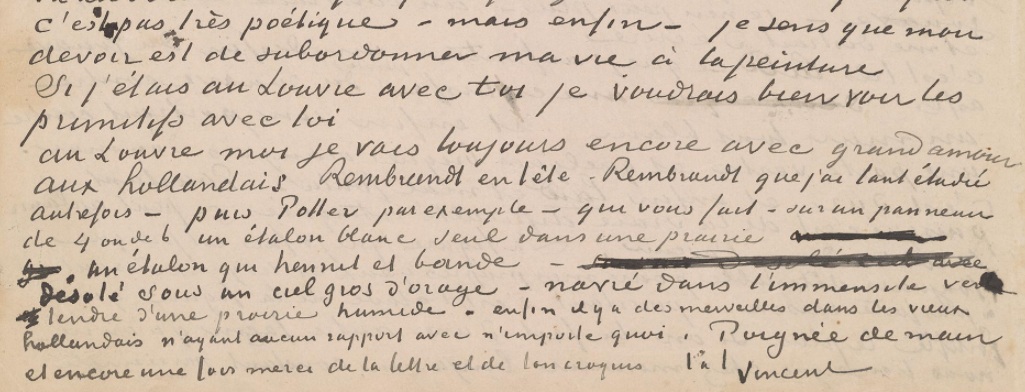 c'est pas très poétique – mais enfin – je sens que mon
devoir est de subordonner ma vie à la peinture
Si j'étais au Louvre avec toi je voudrais bien voir les
primitifs avec toi
au Louvre moi je vais toujours encore avec grand amour
aux hollandais Rembrandt en tête – Rembrandt que j'ai tant étudié
autrefois – puis Potter par exemple – qui vous fait – sur un panneau
de 4 ou de 6 un étalon blanc seul dans une prairie
un étalon qui hennit et bande –
désolé sous un ciel gros d'orage – navré dans l'immensité vert
tendre d'une prairie humide – enfin il y a des merveilles dans les vieux
hollandais n'ayant aucun rapport avec n'importe quoi. Poignée de main
et encore une fois merci de ta lettre et de ton croquis t. à t. Vincent